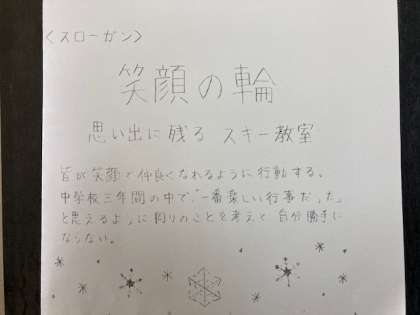 <スローガン>
笑顔の輪
思い出に残る スキー教室
皆が笑顔で仲良くなれるように行動する。
中学校三年間の中で、「一番楽しい行事だった」
と思えるように周りのことを考えて 自分勝手に
ならない。